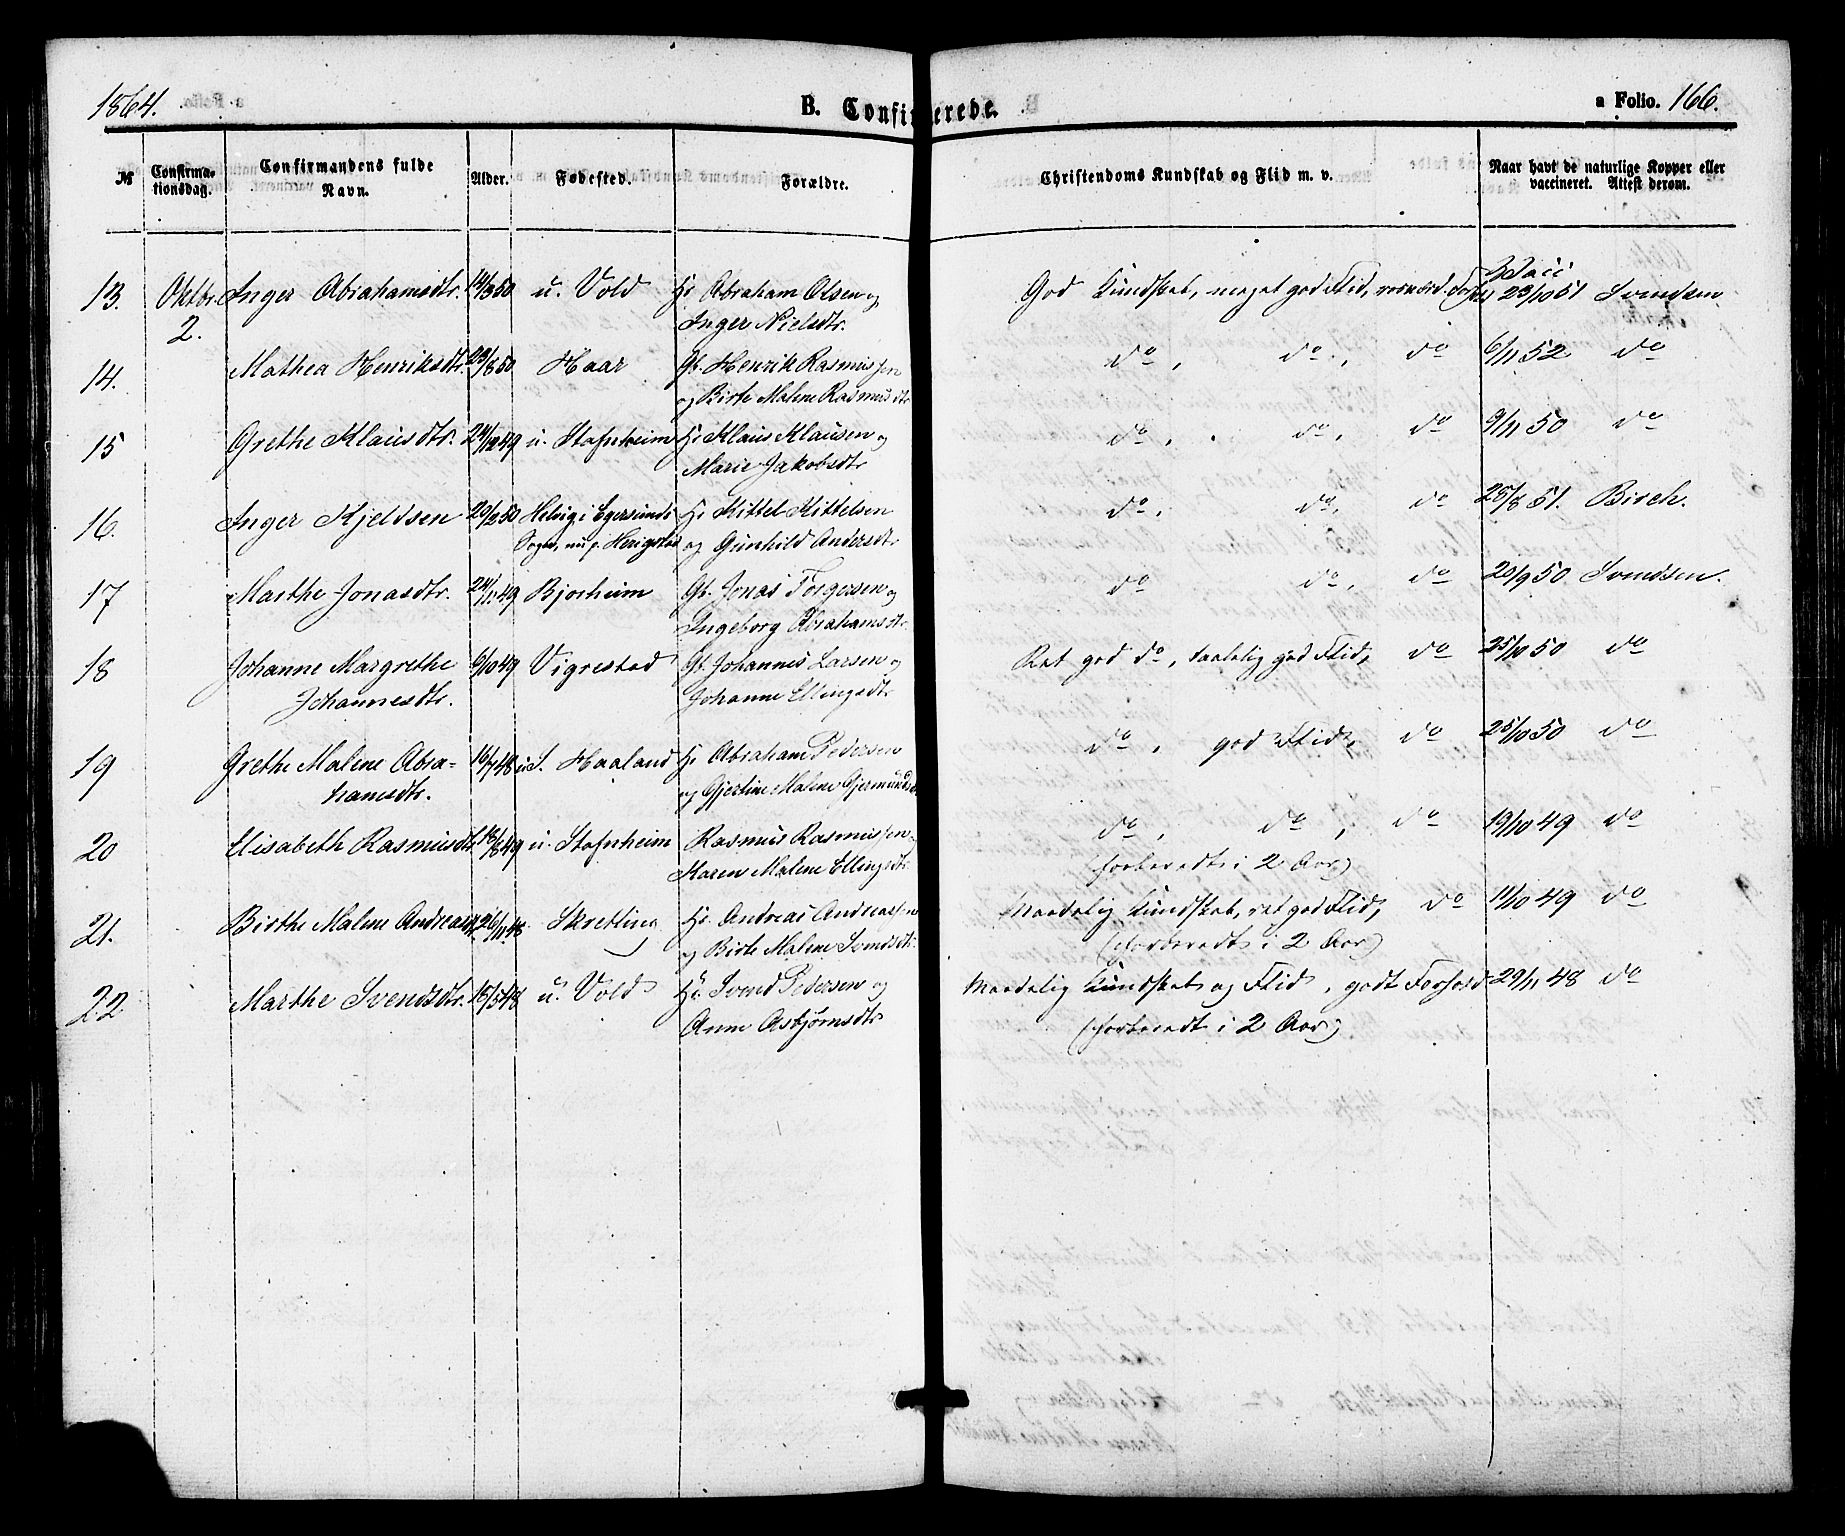 1864. B. Confirmerede. a Folio. 166.
№ Confirma- Confirmandens fulde Alder. Fødested. Forældre. Christendoms Kundskab og Flid m. v. Naar havt de naturlige Kopper eller
tionsdag. Navn. vaccineret. Attest derom.
Vacc
13. Oktbr. Inger Abrahamsdtr. 14/3 50 u. Vold Hr Abraham Olsen og God Kundskab, meget god Flid, 23/10 51 Svendsen
2. Inger Nielsdtr.
14. Mathea Henriksdtr. 23/8 50 Haar Gb. Henrik Rasmussen do, do, do 6/11 52 do
og Birte Malene Rasmusdtr
15 Grethe Klausdtr. 24/12 49 u. Stafnheim Hr Klaus Klausen og do, do, do 9/11 50 do
Marie Jakobsdtr
16. Inger Kjeldsen 20/2 50 Helvig i Egersunds Hr Kittel Kittelsen do, do, do 25/8 51. Birch.
Sogn, nu p. Herigstad og Gunhild Andersdtr
17 Marthe Jonasdtr. 24/11 49 Bjorheim Gb. Jonas Torgersen og do do, do 20/9 50 Svendsen.
Ingeborg Abrahamsdtr.
18 Johanne Margrethe 6/10 49 Vigrestad Gb. Johannes Larsen og Ret god do, taalelig god Flid, do 25/10 50 do
Johannesdtr. Johanne Ellingsdtr
19 Grethe Malene Abra- 16/7 48 u. S. Haaland Hr Abraham Pedersen do, god Flid, do 25/10 50 do
hamsdtr. og Gjertine Malene Gjermundsdtr
20 Elisabeth Rasmusdtr. 18/8 49 u. Stafnheim Rasmus Rasmussen og do, do, do 19/10 49 do
Karen Malene Ellingsdtr. (forberedt i 2 Aar)
21. Birthe Malene Andreasdtr 26/11 48 Skretting Hr Andreas Andreassen Maadelig Kundskab, ret god Flid, do 11/10 49 do
og Birte Malene Svendsdtr. (forberedt i 2 Aar)
22 Marthe Svendsdtr. 16/5 48 u. Vold Hr. Svend Pedersen og Maadelig Kundskab og Flid, godt Forhold 29/11 48 do
Anne Asbjørnsdtr (forberedt i 2 Aar)